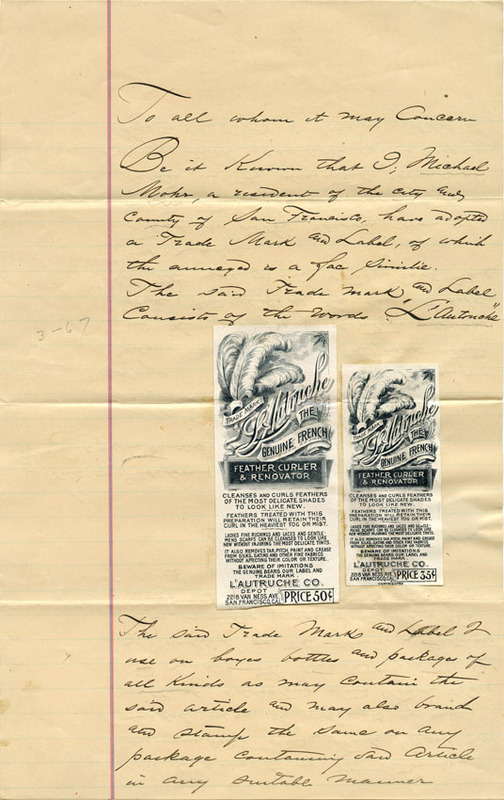 To all whom it may Concern
Be it Known that I, Michael
Mohr, a resident of the city and
County of San Francisco, have adopted
a Trade Mark and Label, of which
the annexed is a fac simile.
The said Trade mark and Label
Consists of the Words "L'Autruche"
3-67
TRADE MARK
L'Autruche
THE
GENUINE FRENCH
FEATHER CURLER
& RENOVATOR
CLEANSES AND CURLS FEATHERS
OF THE MOST DELICATE SHADES
TO LOOK LIKE NEW.
FEATHERS TREATED WITH THIS
PREPARATION WILL RETAIN THEIR
CURL IN THE HEAVIEST FOG OR MIST.
LADIES FINE RUCHINGS AND LACES AND GENTLE-
MENS SCARFS CAN BE CLEANSED TO LOOK LIKE
NEW WITHOUT INJURING THE MOST DELICATE TINTS.
IT ALSO REMOVES TAR, PITCH, PAINT AND GREASE
FROM SILKS, SATINS AND OTHER FINE FABRICS
WITHOUT AFFECTING THEIR COLOR OR TEXTURE.
BEWARE OF IMITATIONS
THE GENUINE BEARS OUR LABEL AND
TRADE MARK
L'AUTRUCHE CO.
DEPOT
2218 VAN NESS AVE.
SAN FRANCISCO, CAL.
PRICE 50¢
TRADE MARK
L'Autruche
THE
GENUINE FRENCH
FEATHER CURLER
& RENOVATOR
CLEANSES AND CURLS FEATHERS
OF THE MOST DELICATE SHADES
TO LOOK LIKE NEW.
FEATHERS TREATED WITH THIS
PREPARATION WILL RETAIN THEIR
CURL IN THE HEAVIEST FOG OR MIST.
LADIES FINE RUCHINGS AND LACES AND GENTLE-
MENS SCARFS CAN BE CLEANSED TO LOOK LIKE
NEW WITHOUT INJURING THE MOST DELICATE TINTS.
IT ALSO REMOVES TAR, PITCH, PAINT AND GREASE
FROM SILKS, SATINS AND OTHER FINE FABRICS
WITHOUT AFFECTING THEIR COLOR OR TEXTURE.
BEWARE OF IMITATIONS
THE GENUINE BEARS OUR LABEL AND
TRADE MARK
L'AUTRUCHE CO.
DEPOT
2218 VAN NESS AVE.
SAN FRANCISCO, CAL.
PRICE 35¢
The said Trade Mark and Label I
use on boxes bottles and packages of
all Kinds as may contain the
said article and may also brand
and stamp the same on any
package containing said Article
in any suitable manner